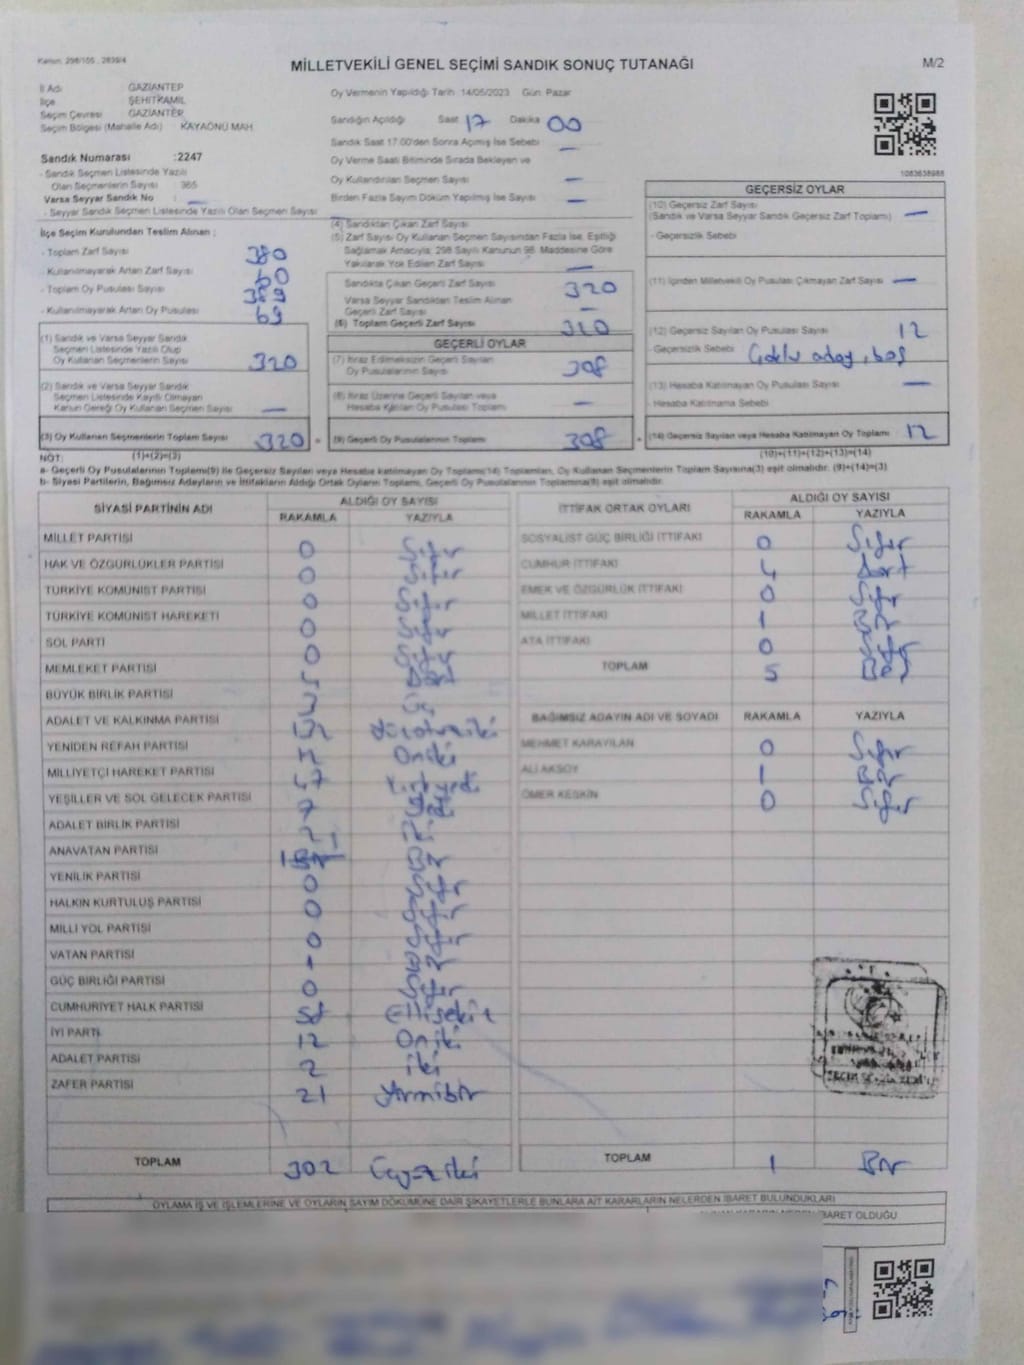 Kanun: 298/105 , 2839/4
MİLLETVEKİLİ GENEL SEÇİMİ SANDIK SONUÇ TUTANAĞI
M/2
İl Adı GAZİANTEP
İlçe ŞEHİTKAMİL
Seçim Çevresi GAZİANTEP
Seçim Bölgesi (Mahalle Adı) KAYAÖNÜ MAH.
Sandık Numarası :2247
- Sandık Seçmen Listesinde Yazılı
Olan Seçmenlerin Sayısı 365
Varsa Seyyar Sandık No : —
- Seyyar Sandık Seçmen Listesinde Yazılı Olan Seçmen Sayısı
İlçe Seçim Kurulundan Teslim Alınan ;
- Toplam Zarf Sayısı 380
- Kullanılmayarak Artan Zarf Sayısı 60
- Toplam Oy Pusulası Sayısı 389
- Kullanılmayarak Artan Oy Pusulası 69
(1) Sandık ve Varsa Seyyar Sandık
Seçmen Listesinde Yazılı Olup
Oy Kullanan Seçmenlerin Sayısı 320
(2) Sandık ve Varsa Seyyar Sandık
Seçmen Listesinde Kayıtlı Olmayan
Kanun Gereği Oy Kullanan Seçmen Sayısı —
(3) Oy Kullanan Seçmenlerin Toplam Sayısı 320
Oy Vermenin Yapıldığı Tarih :14/05/2023 Gün: Pazar
Sandığın Açıldığı Saat 17 Dakika 00
Sandık Saat 17.00'den Sonra Açılmış İse Sebebi —
Oy Verme Saati Bitiminde Sırada Bekleyen ve
Oy Kullandırılan Seçmen Sayısı —
Birden Fazla Sayım Döküm Yapılmış İse Sayısı —
(4) Sandıktan Çıkan Zarf Sayısı
(5) Zarf Sayısı Oy Kullanan Seçmen Sayısından Fazla İse, Eşitliği
Sağlamak Amacıyla, 298 Sayılı Kanunun 98. Maddesine Göre
Yakılarak Yok Edilen Zarf Sayısı —
Sandıkta Çıkan Geçerli Zarf Sayısı 320
Varsa Seyyar Sandıktan Teslim Alınan
Geçerli Zarf Sayısı —
(6) Toplam Geçerli Zarf Sayısı 320
GEÇERLİ OYLAR
(7) İtiraz Edilmeksizin Geçerli Sayılan
Oy Pusulalarının Sayısı 308
(8) İtiraz Üzerine Geçerli Sayılan veya
Hesaba Katılan Oy Pusulası Toplamı —
(9) Geçerli Oy Pusulalarının Toplamı 308
1083638988
GEÇERSİZ OYLAR
(10) Geçersiz Zarf Sayısı
(Sandık ve Varsa Seyyar Sandık Geçersiz Zarf Toplamı) —
- Geçersizlik Sebebi
(11) İçinden Milletvekili Oy Pusulası Çıkmayan Zarf Sayısı —
(12) Geçersiz Sayılan Oy Pusulası Sayısı 12
- Geçersizlik Sebebi Çoklu aday, boş
(13) Hesaba Katılmayan Oy Pusulası Sayısı —
- Hesaba Katılmama Sebebi
(14) Geçersiz Sayılan veya Hesaba Katılmayan Oy Toplamı 12
NOT: (1)+(2)=(3) (10)+(11)+(12)+(13)=(14)
a- Geçerli Oy Pusulalarının Toplamı(9) ile Geçersiz Sayılan veya Hesaba katılmayan Oy Toplamı(14) Toplamları, Oy Kullanan Seçmenlerin Toplam Sayısına(3) eşit olmalıdır. (9)+(14)=(3)
b- Siyasi Partilerin, Bağımsız Adayların ve İttifakların Aldığı Ortak Oyların Toplamı, Geçerli Oy Pusulalarının Toplamına(9) eşit olmalıdır.
SİYASİ PARTİNİN ADI ALDIĞI OY SAYISI
RAKAMLA YAZIYLA
MİLLET PARTİSİ 0 Sıfır
HAK VE ÖZGÜRLÜKLER PARTİSİ 0 Sıfır
TÜRKİYE KOMÜNİST PARTİSİ 0 Sıfır
TÜRKİYE KOMÜNİST HAREKETİ 0 Sıfır
SOL PARTİ 0 Sıfır
MEMLEKET PARTİSİ 5 Beş
BÜYÜK BİRLİK PARTİSİ 3 Üç
ADALET VE KALKINMA PARTİSİ 132 Yüzotuziki
YENİDEN REFAH PARTİSİ 12 Oniki
MİLLİYETÇİ HAREKET PARTİSİ 47 Kırkyedi
YEŞİLLER VE SOL GELECEK PARTİSİ 7 Yedi
ADALET BİRLİK PARTİSİ 2 İki
ANAVATAN PARTİSİ 1 Bir
YENİLİK PARTİSİ 0 Sıfır
HALKIN KURTULUŞ PARTİSİ 0 Sıfır
MİLLİ YOL PARTİSİ 0 Sıfır
VATAN PARTİSİ 1 Bir
GÜÇ BİRLİĞİ PARTİSİ 0 Sıfır
CUMHURİYET HALK PARTİSİ 58 Ellisekiz
İYİ PARTİ 12 Oniki
ADALET PARTİSİ 2 iki
ZAFER PARTİSİ 21 Yirmibir
TOPLAM 302 Üçyüziki
İTTİFAK ORTAK OYLARI ALDIĞI OY SAYISI
RAKAMLA YAZIYLA
SOSYALİST GÜÇ BİRLİĞİ İTTİFAKI 0 Sıfır
CUMHUR İTTİFAKI 4 Dört
EMEK VE ÖZGÜRLÜK İTTİFAKI 0 Sıfır
MİLLET İTTİFAKI 1 Bir
ATA İTTİFAKI 0 Sıfır
TOPLAM 5 Beş
BAĞIMSIZ ADAYIN ADI VE SOYADI RAKAMLA YAZIYLA
MEHMET KARAYILAN 0 Sıfır
ALİ AKSOY 1 Bir
ÖMER KESKİN 0 Sıfır
TOPLAM 1 Bir
OYLAMA İŞ VE İŞLEMLERİNE VE OYLARIN SAYIM DÖKÜMÜNE DAİR ŞİKAYETLERLE BUNLARA AİT KARARLARIN NELERDEN İBARET BULUNDUKLARI
İBARET OLDUĞU